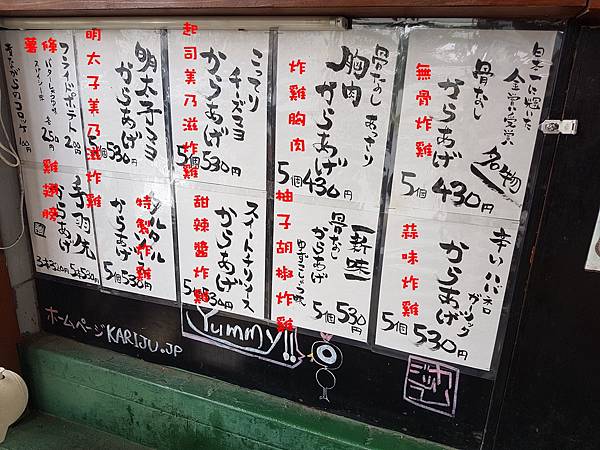 日本一に輝いた
金賞受賞
名物
骨なし
からあげ
5個430円
無骨炸雞
骨なし あっさり
胸肉
からあげ
5個430円
炸雞胸肉
こってり
チーズマヨ
からあげ
5個530円
起司美乃滋炸雞
明太子マヨ
からあげ
5個530円
明太子美乃滋炸雞
フライドポテト 200円
250円
薯條
昔ながらのコロッケ 100円
辛い
からあげ
5個530円
蒜味炸雞
新味
骨なし
からあげ
5個530円
柚子胡椒炸雞
スイートチリソース
からあげ
5個530円
甜辣醬炸雞
タルタル
からあげ
5個530円
特製炸雞
手羽先
からあげ
3本320円 5本530円
雞翅膀
ホームページ KARIJU.JP
Yummy!!